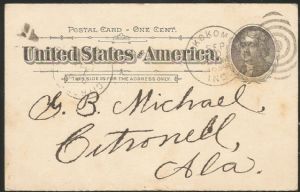 POSTAL CARD – ONE CENT.
United States of America.
THIS SIDE IS FOR THE ADDRESS ONLY.
SEP
IND
G. B. Michael,
Citronell,
Ala.